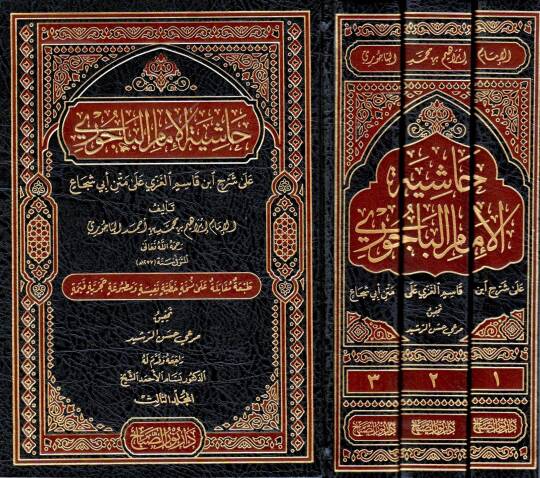 حاشية الإمام الباجوري
على شرح ابن قاسم الغزي على متن أبي شجاع
تأليف
الإمام إبراهيم بن محمد بن أحمد الباجوري
رحمه الله تعالى
المتوفى سنة (١٢٧٧هـ)
طبعة مقابلة على نسخة خطية نفيسة ومطبوعة حجرية قيمة
تحقيق
مرعي حسن الرشيد
راجعه وقدم له
الدكتور بسام الأحمد الشيخ
المجلد الثالث
دار نور الصباح
الإمام إبراهيم بن محمد الباجوري
حاشية
الإمام الباجوري
على شرح ابن قاسم الغزي على متن أبي شجاع
تحقيق
مرعي حسن الرشيد
١ ٢ ٣
دار نور الصباح دار نور الصباح دار نور الصباح